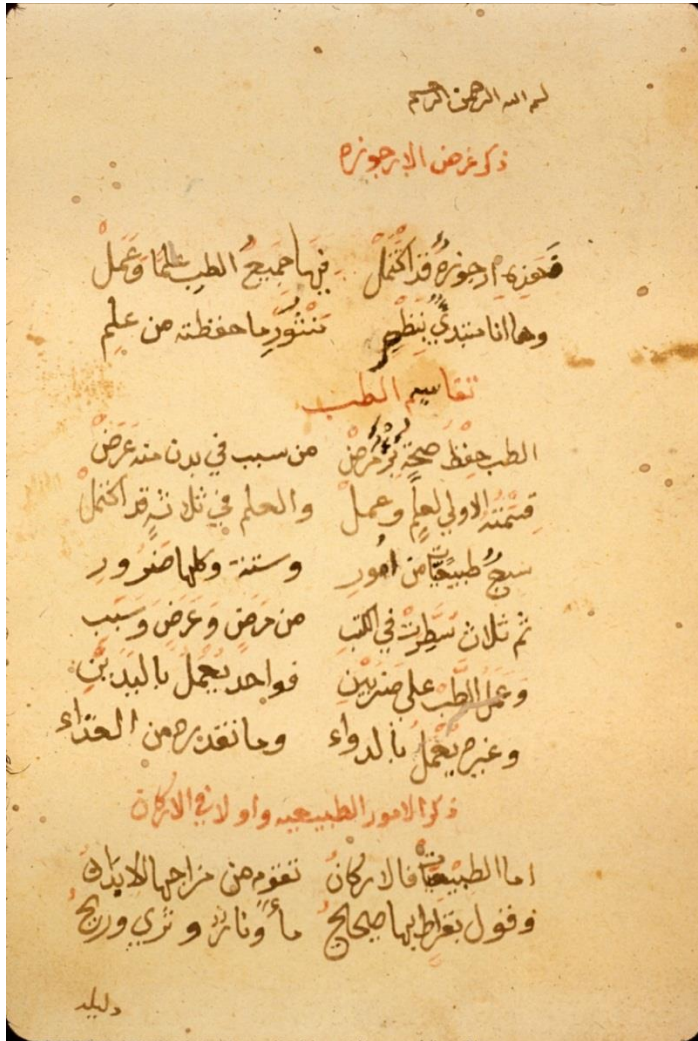 بسم الله الرحمن الرحيم
ذكر غرض الارجوزه
فهذه ارجوزة قد اكتمل فيها جميع الطب علما وعمل
وها انا مبتدي بنظم منثور ما حفظته من علم
تقاسيم الطب
الطب حفظ صحة برء مرض من سبب في بدن منه عرض
قسمته الاولي لعلم وعمل والعلم في ثلاثة قد اكتمل
سبع طبيعيات من امور وستة وكلها ضرور
ثم ثلاث سطرت في الكتب من مرض وعرض وسبب
وعمل الطب علي ضربين فواحد يعمل باليدين
وغيره يعمل بالدواء وما نقدره من الغذاء
ذكر الامور الطبيعيه واولا في الاركان
اما الطبيعيات فالاركان تقوم من مزاجها الابدان
وقول بقراط بها صحيح مأ ونار وثري وريح
دليله